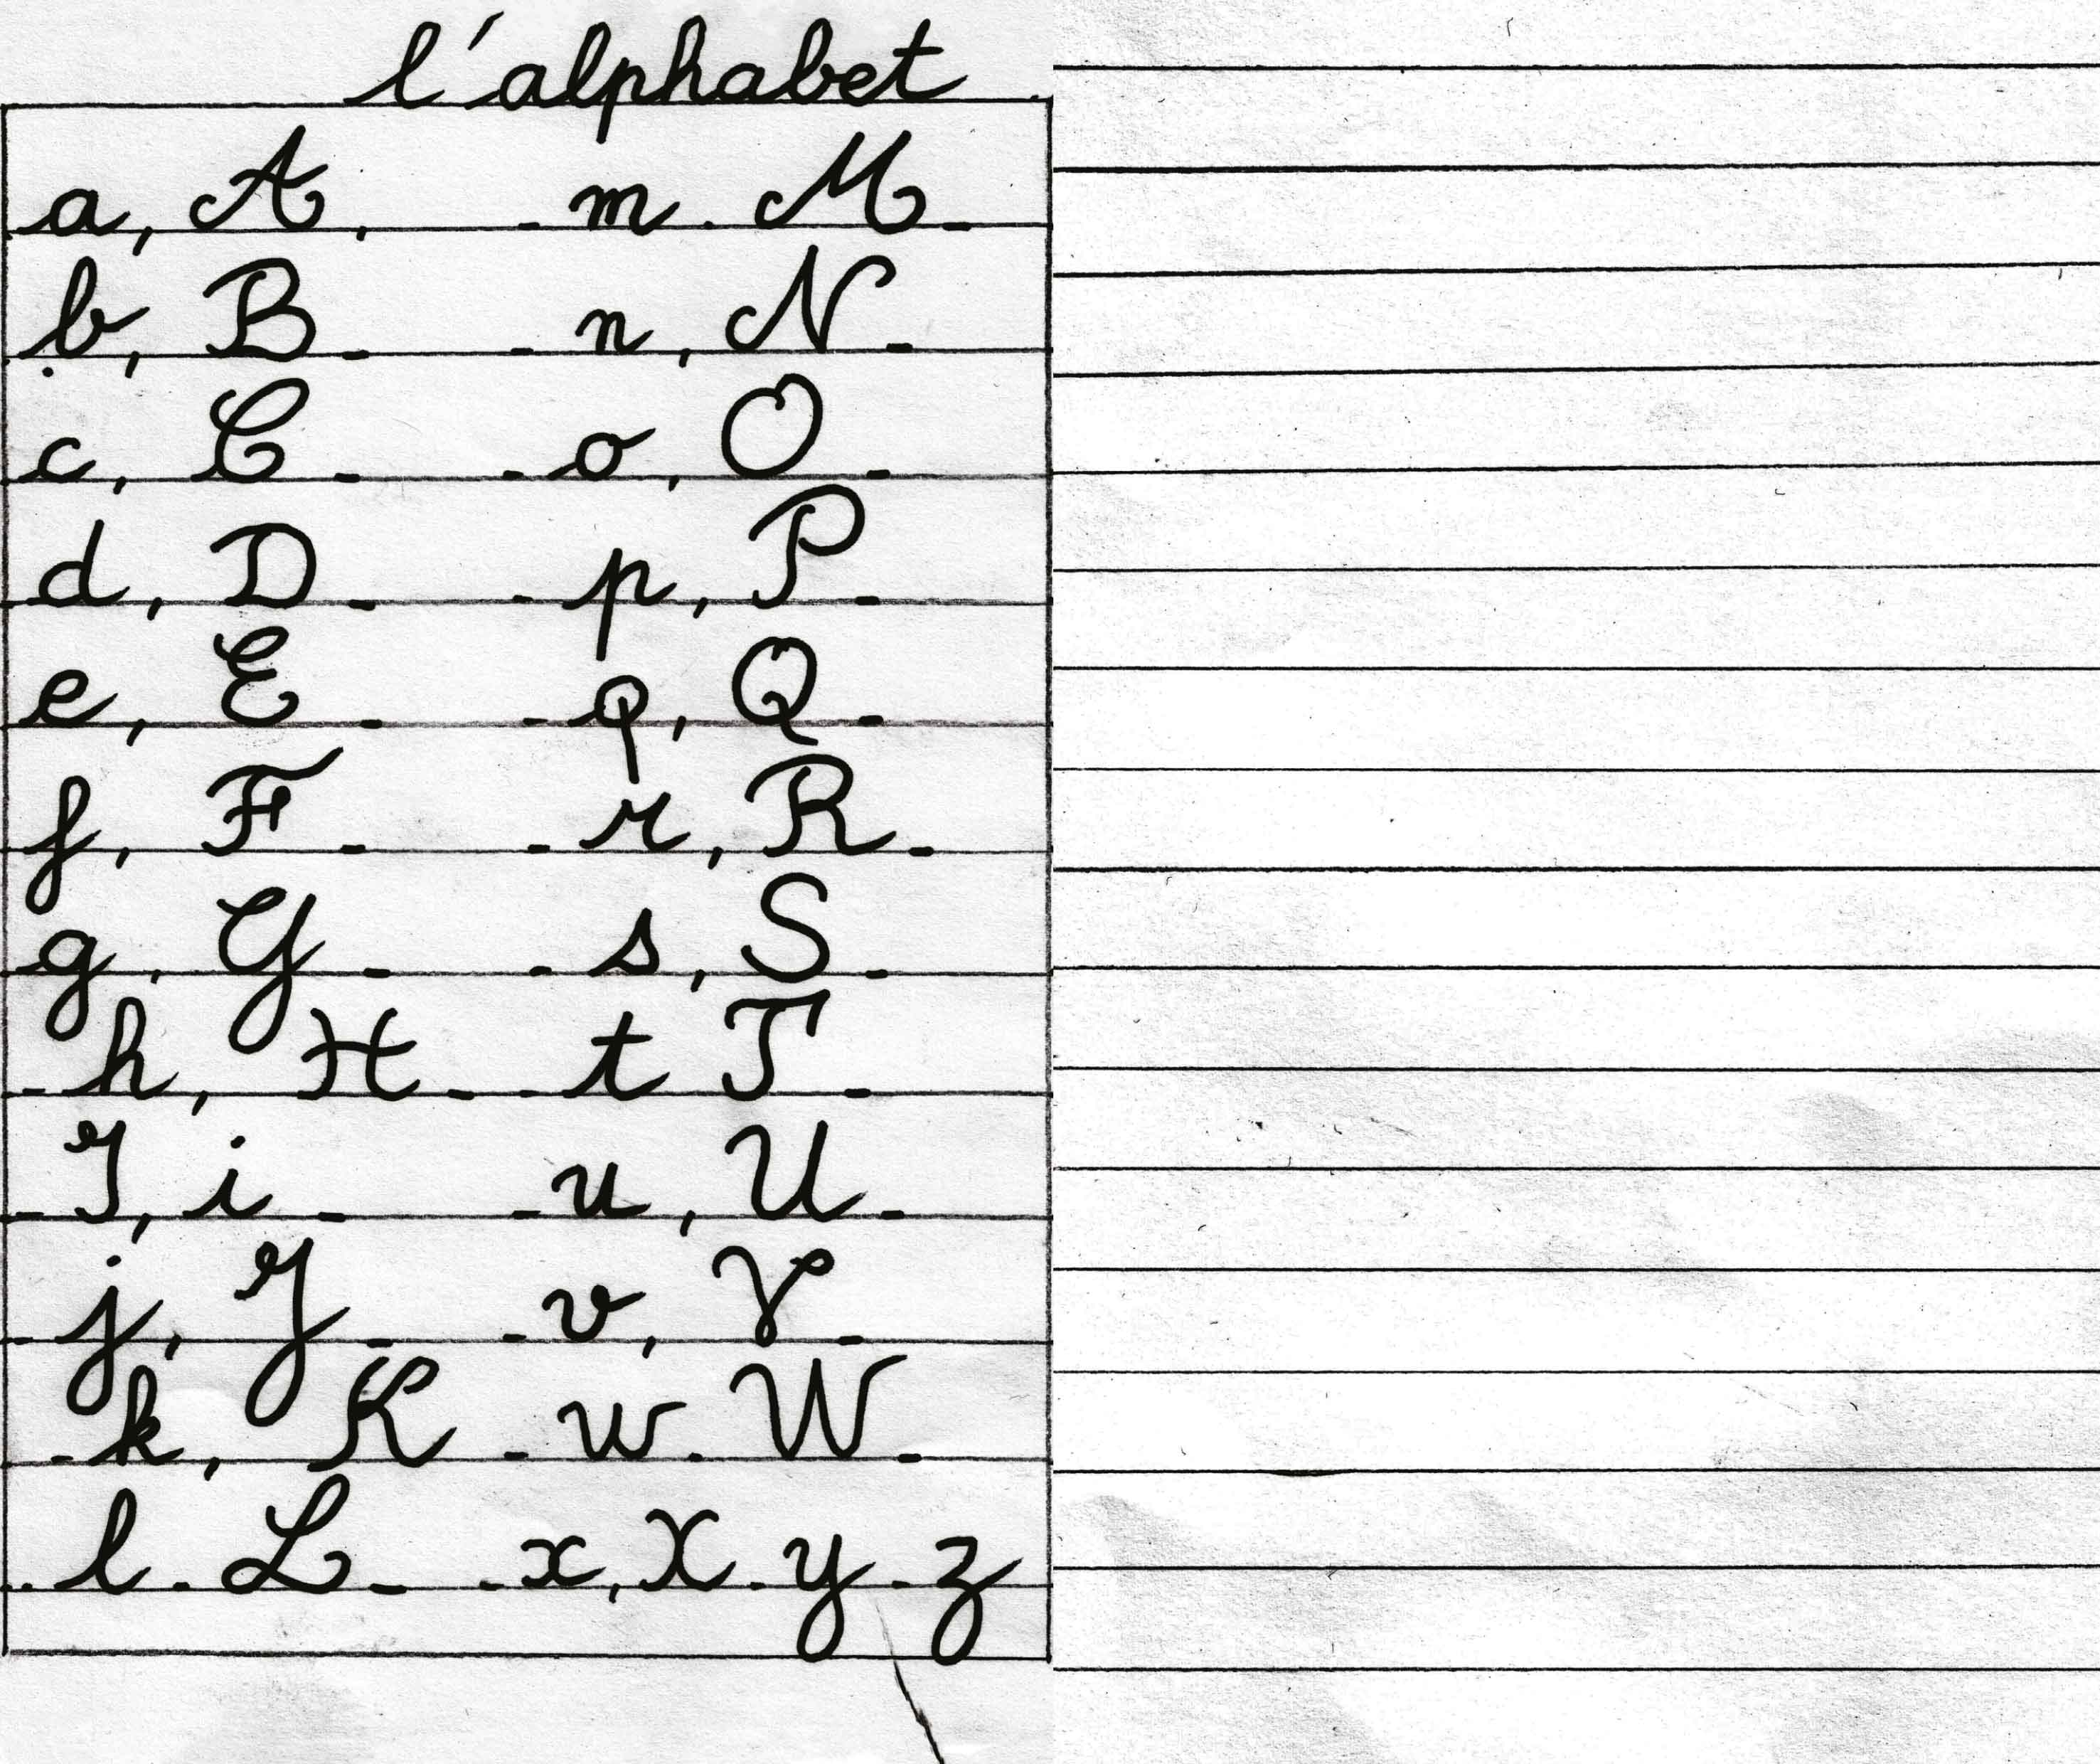 l'alphabet
a, A, - m. M -
b, B - - n, N -
c, C - - o, O -
d, D - - p, P -
e, E - - q, Q -
f, F - - r, R -
g, G - - s, S -
- h, H - - t T -
- I, i - - u, U -
- j, J - - v, V -
- k, K - w. W -
. l. L - - x, X - y - z